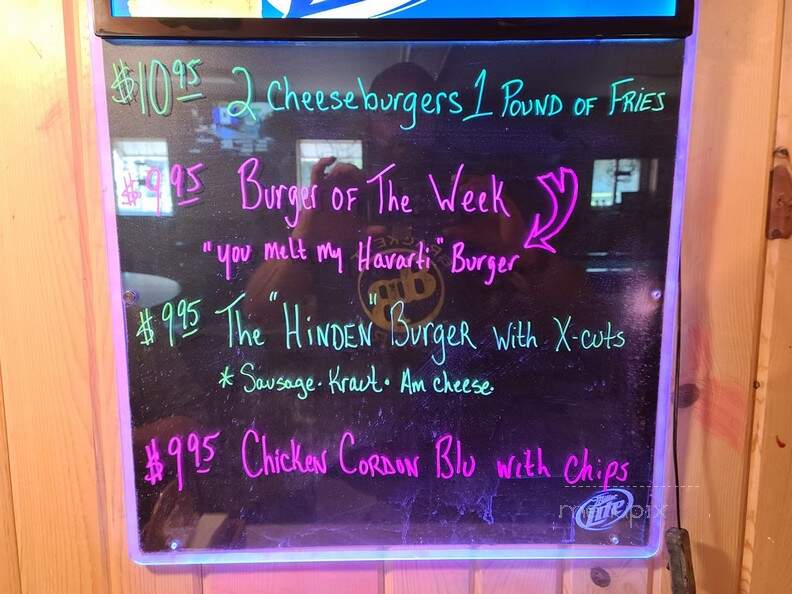 $10.95 2 Cheeseburgers 1 POUND OF FRIES
$9.95 Burger OF The Week
"you melt my Havarti" Burger
$9.95 The "HINDEN" Burger with X-cuts
* Sausage · Kraut · Am cheese.
$9.95 Chicken Cordon Blu with chips
Miller Lite
menupix